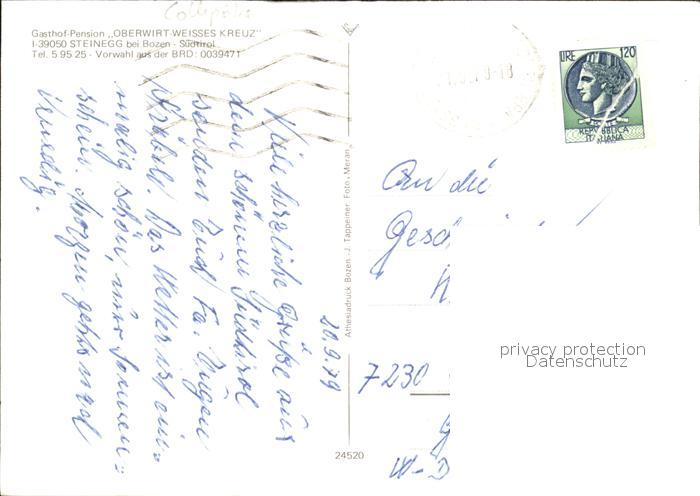 Collepietra
Gasthof-Pension „OBERWIRT-WEISSES KREUZ"
I-39050 STEINEGG bei Bozen - Südtirol
Tel. 5 95 25 - Vorwahl aus der BRD : 0039471
20.9.79
Viele herzliche Grüße aus
dem schönen Südtirol
senden Euch Fa. Eugen
Das Wetter ist ein=
malig schön, nur Sonnen=
schein. Morgen gehts nach
Venedig.
Athesiadruck Bozen - J. Tappeiner Foto, Meran
24520
LIRE 120
REPUBBLICA
ITALIANA
An die
Gesch
7230
W-D
privacy protection
Datenschutz